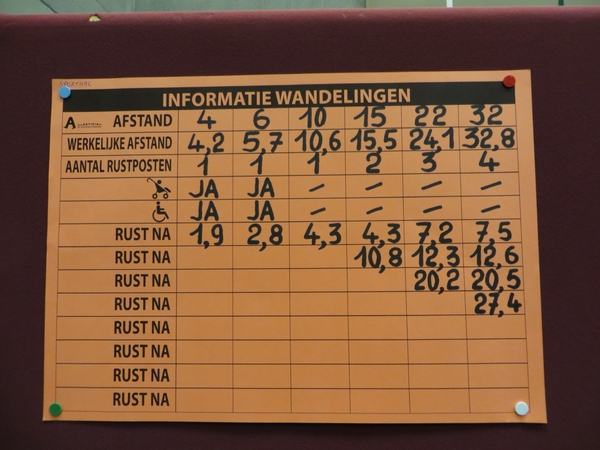 INFORMATIE WANDELINGEN
AFSTAND 4 6 10 15 22 32
WERKELIJKE AFSTAND 4,2 5,7 10,6 15,5 24,1 32,8
AANTAL RUSTPOSTEN 1 1 1 2 3 4
JA JA – – – –
JA JA – – – –
RUST NA 1,9 2,8 4,3 4,3 7,2 7,5
RUST NA 10,8 12,3 12,6
RUST NA 20,2 20,5
RUST NA 27,4
RUST NA
RUST NA
RUST NA
RUST NA